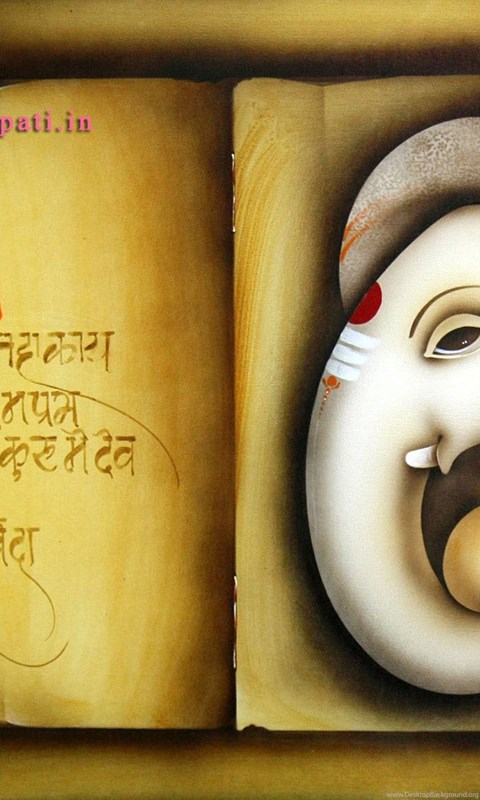 pati.in
महाकाय
मप्रभ
कुरु मे देव
र्वदा
www.DesktopBackground.org